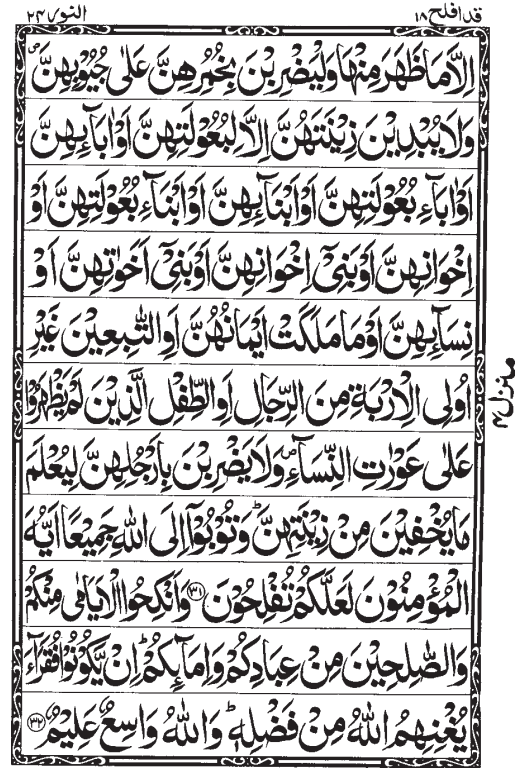 قد افلح ١٨
النور ٢٤
اِلَّا مَا ظَهَرَ مِنْهَا وَلْيَضْرِبْنَ بِخُمُرِهِنَّ عَلٰى جُيُوْبِهِنَّ ۪
وَلَا يُبْدِيْنَ زِيْنَتَهُنَّ اِلَّا لِبُعُوْلَتِهِنَّ اَوْ اٰبَآىِٕهِنَّ
اَوْ اٰبَآءِ بُعُوْلَتِهِنَّ اَوْ اَبْنَآىِٕهِنَّ اَوْ اَبْنَآءِ بُعُوْلَتِهِنَّ اَوْ
اِخْوَانِهِنَّ اَوْ بَنِىْۤ اِخْوَانِهِنَّ اَوْ بَنِىْۤ اَخَوٰتِهِنَّ اَوْ
نِسَآىِٕهِنَّ اَوْ مَا مَلَكَتْ اَيْمَانُهُنَّ اَوِ التّٰبِعِيْنَ غَيْرِ
اُولِى الْاِرْبَةِ مِنَ الرِّجَالِ اَوِ الطِّفْلِ الَّذِيْنَ لَمْ يَظْهَرُوْا
عَلٰى عَوْرٰتِ النِّسَآءِ ۪ وَلَا يَضْرِبْنَ بِاَرْجُلِهِنَّ لِيُعْلَمَ
مَا يُخْفِيْنَ مِنْ زِيْنَتِهِنَّ ؕ وَتُوْبُوْۤا اِلَى اللّٰهِ جَمِيْعًا اَيُّهَ
الْمُؤْمِنُوْنَ لَعَلَّكُمْ تُفْلِحُوْنَ ﴿٣١﴾ وَاَنْكِحُوا الْاَيَامٰى مِنْكُمْ
وَالصّٰلِحِيْنَ مِنْ عِبَادِكُمْ وَاِمَآىِٕكُمْ ؕ اِنْ يَّكُوْنُوْا فُقَرَآءَ
يُغْنِهِمُ اللّٰهُ مِنْ فَضْلِهٖ ؕ وَاللّٰهُ وَاسِعٌ عَلِيْمٌ ﴿٣٢﴾
منزل ٤